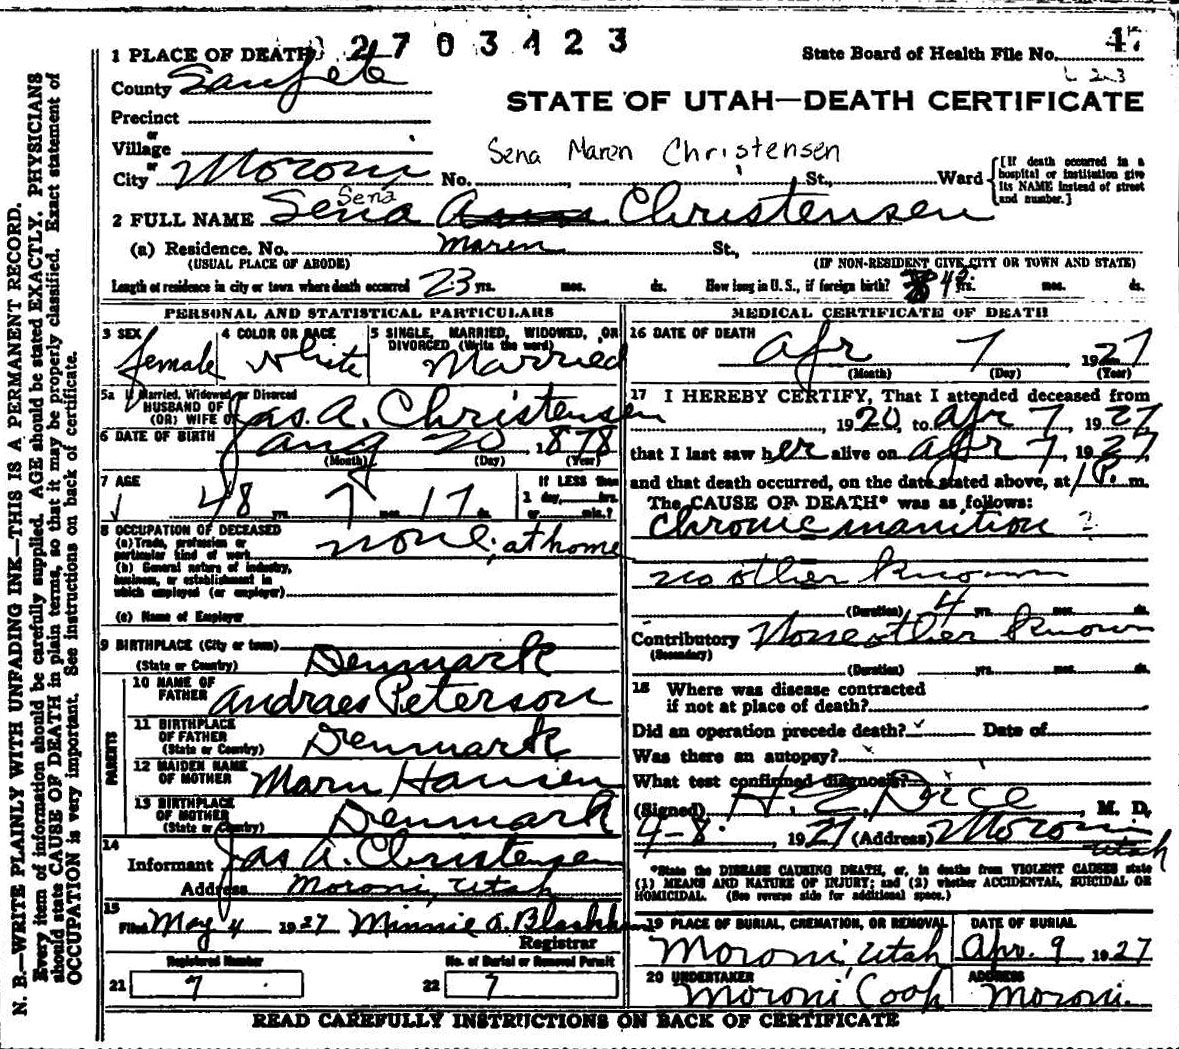 2703423
State Board of Health File No. 47
223
1 PLACE OF DEATH
County Sanpete
STATE OF UTAH—DEATH CERTIFICATE
Precinct
or
Village
or
City Moroni No. St., Ward
Sena Maren Christensen
[If death occurred in a hospital or institution give its NAME instead of street and number.]
Sena
2 FULL NAME Sena Christensen
Maren
(a) Residence. No. St.,
(USUAL PLACE OF ABODE) (IF NON-RESIDENT GIVE CITY OR TOWN AND STATE)
Length of residence in city or town where death occurred 23 yrs. mos. ds. How long in U.S., if foreign birth? 45 yrs. mos. ds.
PERSONAL AND STATISTICAL PARTICULARS
3 SEX female
4 COLOR OR RACE White
5 SINGLE, MARRIED, WIDOWED, OR DIVORCED (Write the word) Married
5a If Married, Widowed, or Divorced
HUSBAND OF
(OR) WIFE OF Jas. A. Christensen
6 DATE OF BIRTH Aug 20, 1878
(Month) (Day) (Year)
7 AGE 48 yrs. 7 mos. 17 ds.
IF LESS than
1 day, hrs.
or min.?
8 OCCUPATION OF DECEASED
(a) Trade, profession or
particular kind of work none; at home
(b) General nature of industry,
business, or establishment in
which employed (or employer)
(c) Name of Employer
9 BIRTHPLACE (City or town)
(State or Country) Denmark
PARENTS
10 NAME OF
FATHER Andraes Peterson
11 BIRTHPLACE
OF FATHER
(State or Country) Denmark
12 MAIDEN NAME
OF MOTHER Marn Hansen
13 BIRTHPLACE
OF MOTHER
(State or Country) Denmark
14
Informant Jas A. Christensen
Address Moroni, Utah
15
Filed May 4 1927 Minnie A.
Registrar
Registered Number
21 7
No. of Burial or Removal Permit
22 7
MEDICAL CERTIFICATE OF DEATH
16 DATE OF DEATH
Apr 7 1927
(Month) (Day) (Year)
17 I HEREBY CERTIFY, That I attended deceased from
, 1920, to Apr 7, 1927
that I last saw her alive on Apr 7, 1927
and that death occurred, on the date stated above, at 1 P. m.
The CAUSE OF DEATH* was as follows:
Chronic inanition ?
no other known
(Duration) 4 yrs. mos. ds.
Contributory None other known
(Secondary)
(Duration) yrs. mos. ds.
18 Where was disease contracted
if not at place of death?
Did an operation precede death? Date of
Was there an autopsy?
What test confirmed diagnosis?
(Signed) , M. D.
4-8, 1927 (Address) Moroni
Utah
*State the DISEASE CAUSING DEATH, or, in deaths from VIOLENT CAUSES state
(1) MEANS AND NATURE OF INJURY; and (2) whether ACCIDENTAL, SUICIDAL OR
HOMICIDAL. (See reverse side for additional space.)
19 PLACE OF BURIAL, CREMATION, OR REMOVAL
Moroni, Utah
DATE OF BURIAL
Apr. 9 1927
20 UNDERTAKER
Moroni Coop
ADDRESS
Moroni.
READ CAREFULLY INSTRUCTIONS ON BACK OF CERTIFICATE
N. B.—WRITE PLAINLY WITH UNFADING INK—THIS IS A PERMANENT RECORD.
Every item of information should be carefully supplied. AGE should be stated EXACTLY. PHYSICIANS
should state CAUSE OF DEATH in plain terms, so that it may be properly classified. Exact statement of
OCCUPATION is very important. See instructions on back of certificate.